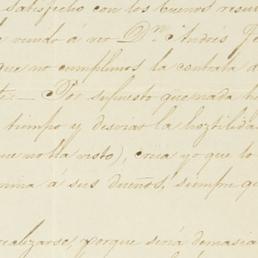 satisfecho con los buenos resul
vendo á ver Dn Andres
que no cumplimos la contrata d
Por supuesto que nada h
tiempo y desviar la hoztilida
ue no lla visto), crea yo que lo
mina á sus dueños, siempre qu
realizarse, porque será demasia